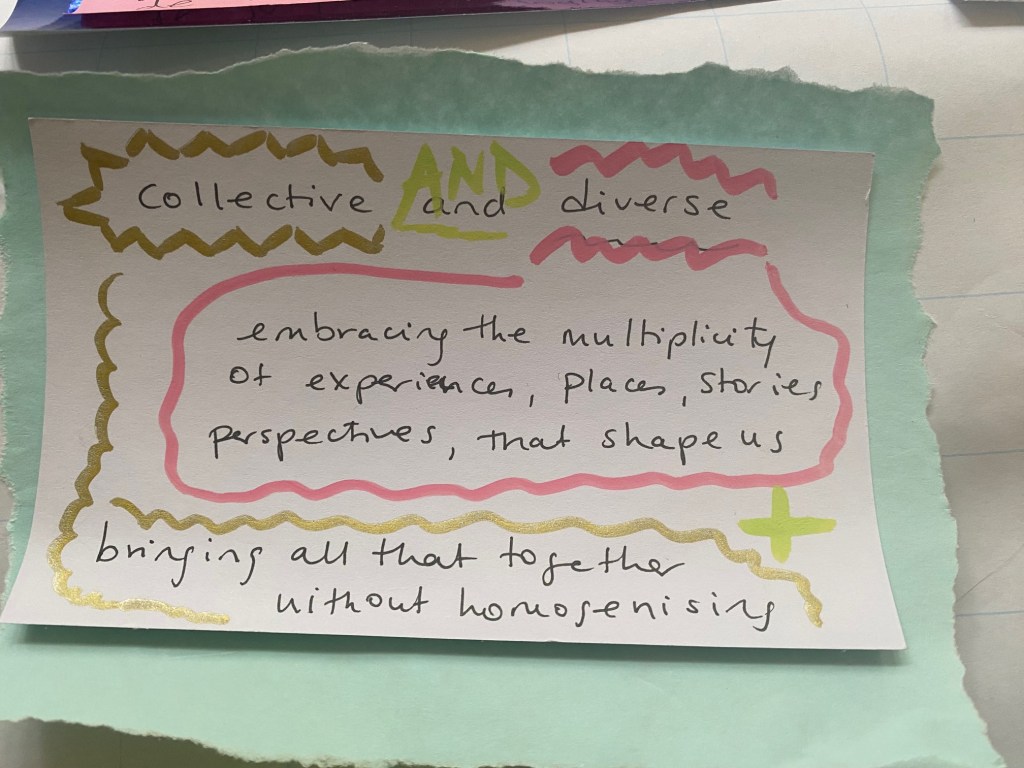 collective and diverse
AND
embracing the multiplicity
of experiences, places, stories
perspectives, that shape us
+
bringing all that together
without homogenising